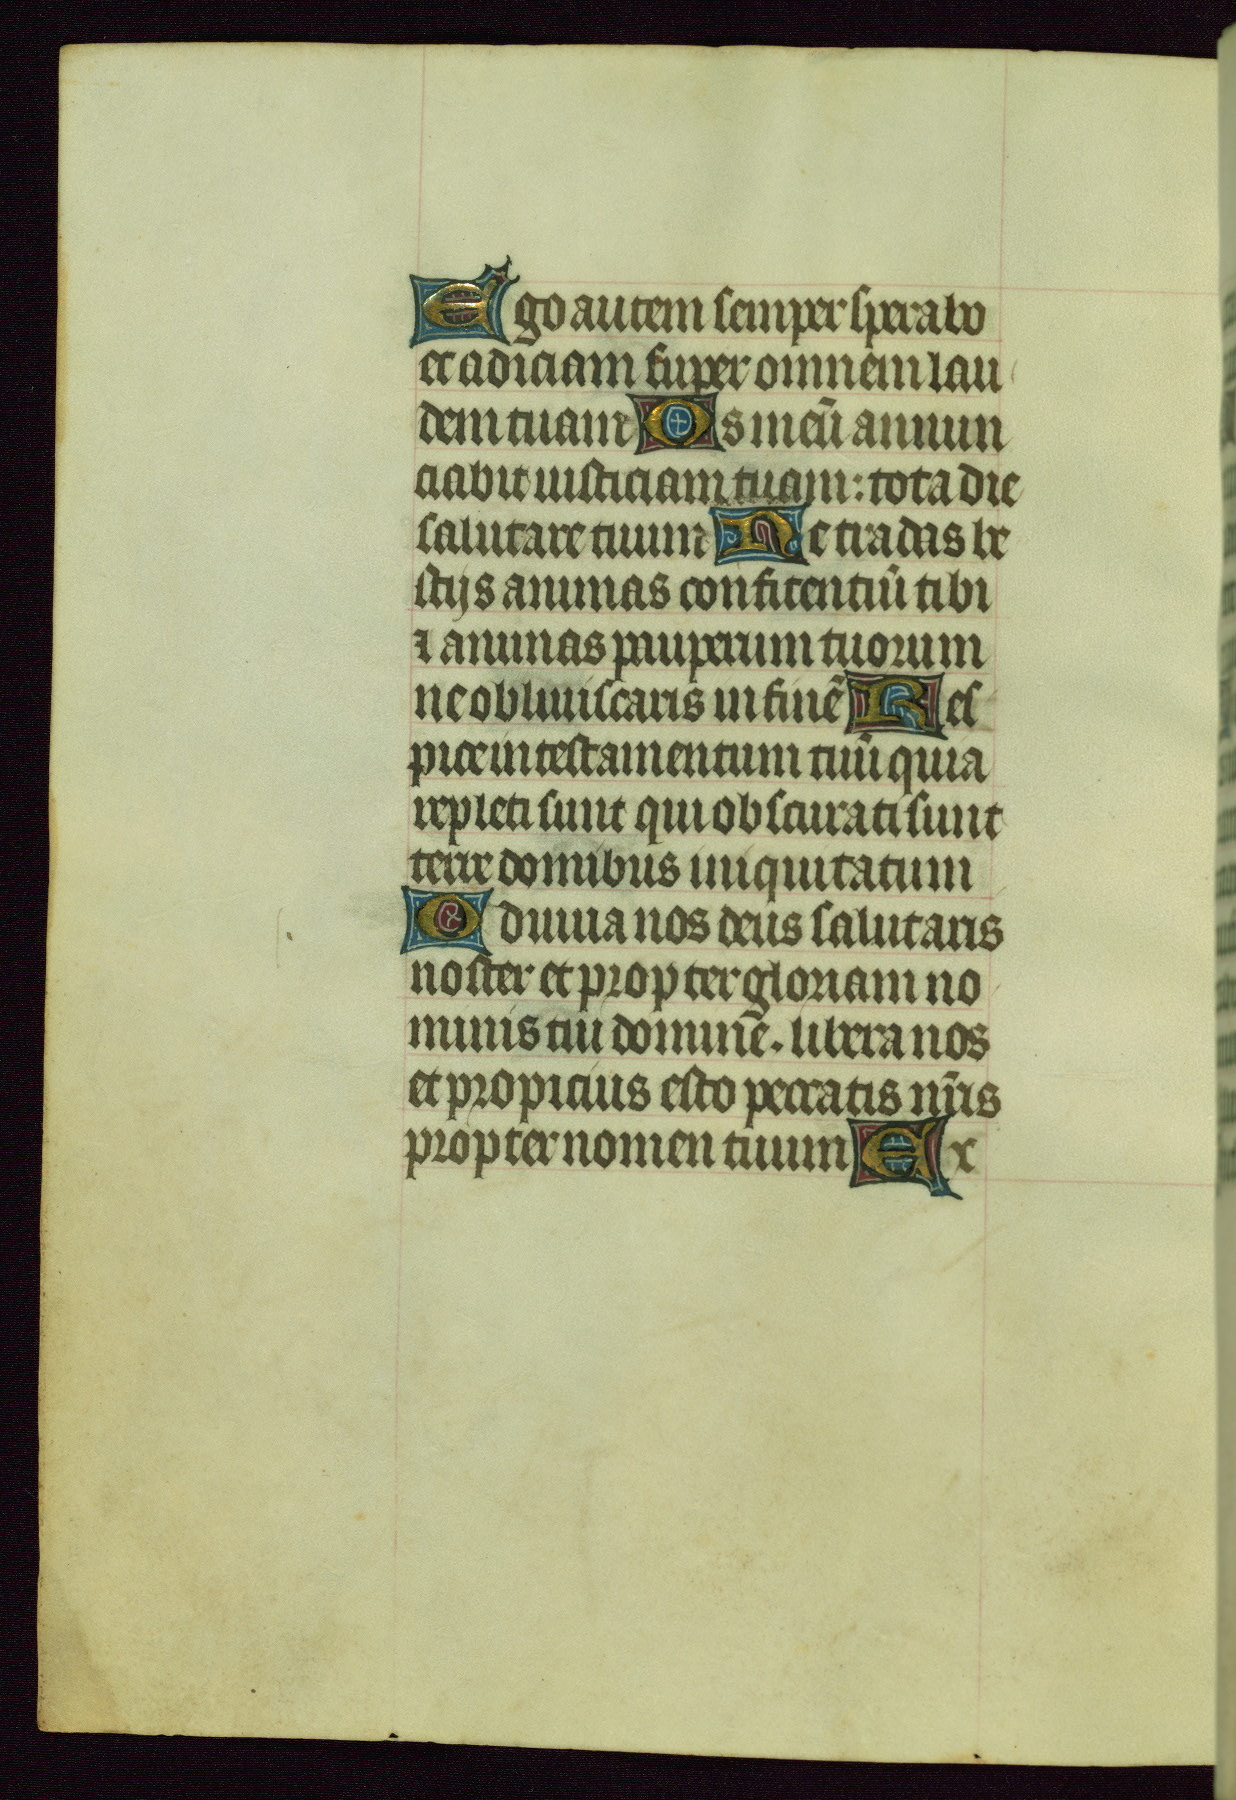 Ego autem semper sperabo
et adiciam super omnem lau
dem tuam Os meū annun
ciabit iusticiam tuam: tota die
salutare tuum Ne tradas be
stijs animas confitentiū tibi
⁊ animas pauperum tuorum
ne obliuiscaris in finē Res
pice in testamentum tuū quia
repleti sunt qui obscurati sunt
terre domibus iniquitatum
Odiuua nos deus salutaris
noster et propter gloriam no
minis tui dominē. libera nos
et propicius esto peccatis nr̄is
propter nomen tuum Ex